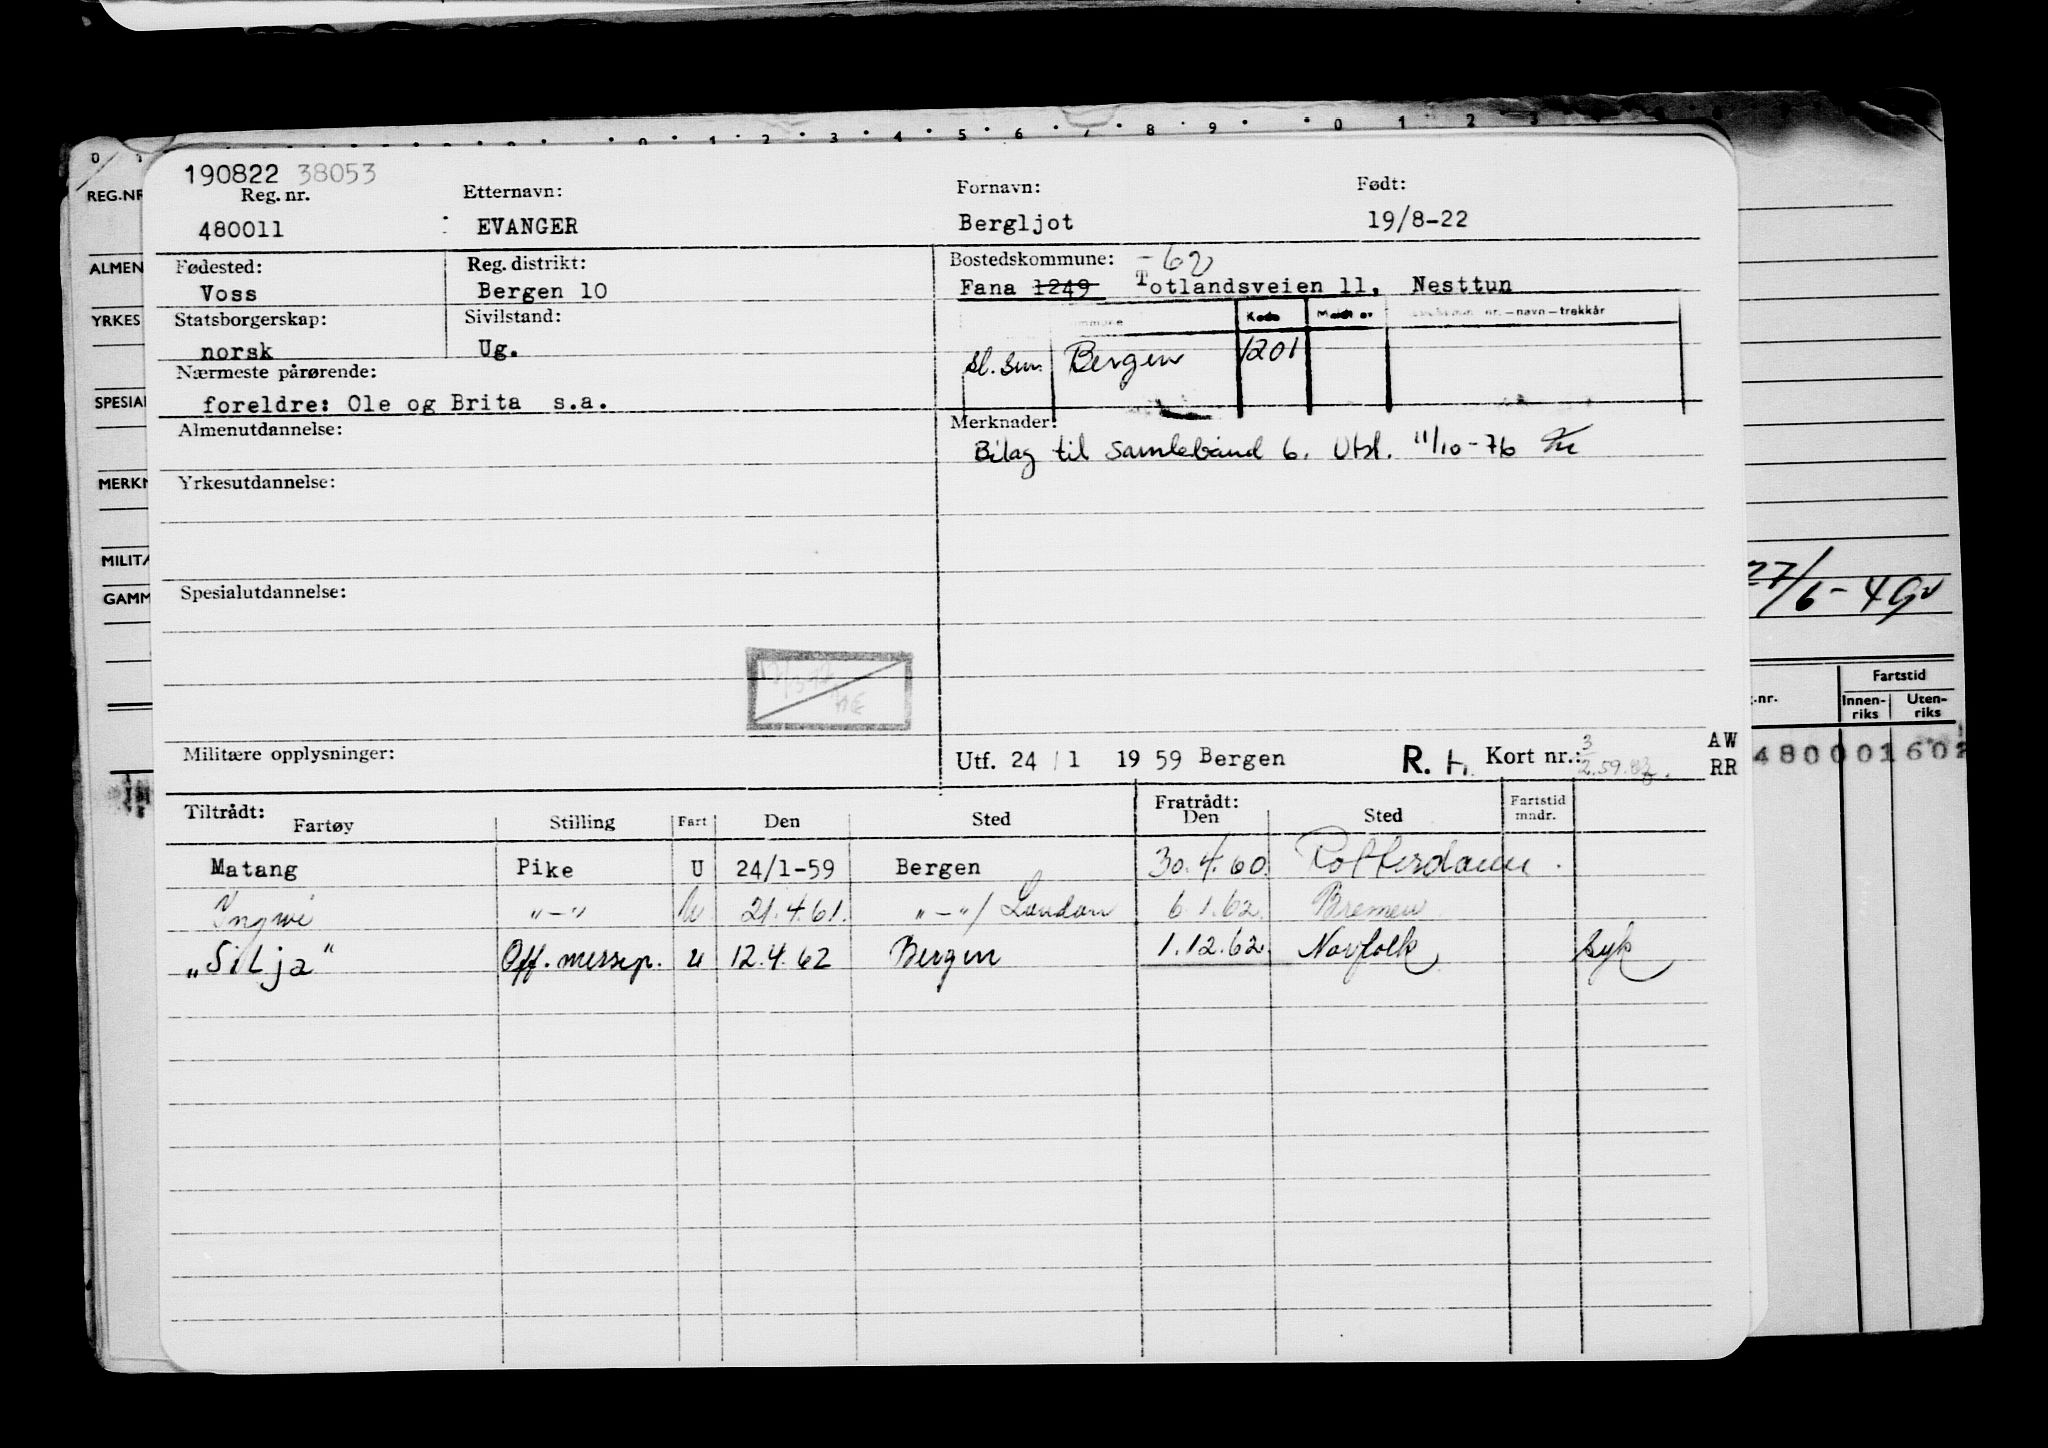 0 1 2 3 4 5 6 7 8 9 0 1 2 3
190822 38053
Reg. nr. Etternavn: Fornavn: Født:
480011 EVANGER Bergljot 19/8-22
Fødested: Reg. distrikt: Bostedskommune: -62
Voss Bergen 10 Fana 1249 Totlandsveien 11, Nesttun
Statsborgerskap: Sivilstand: Kode nr. — navn — trekkår
norsk Ug. Bergen 1201
Nærmeste pårørende:
foreldre: Ole og Brita s.a.
Almenutdannelse: Merknader:
Bilag til Samlebånd 6. Utst. 11/10-76
Yrkesutdannelse:
Spesialutdannelse:
Militære opplysninger: Utf. 24/1 1959 Bergen R. Kort nr.: 3 AW
RR
Tiltrådt: Fratrådt: Fartstid
Fartøy Stilling Fart Den Sted Den Sted mndr.
Matang Pike U 24/1-59 Bergen 30.4.60. Rotterdam.
Yngvi "-" U 21.4.61. "-"/London 6.1.62. Bremen
"Silja" Off. messep. u 12.4.62 Bergen 1.12.62. Norfolk Syk
REG.NR
ALMEN
YRKES
SPESIAL
MERKN
MILITÆ
GAMM
27/6-49
Fartstid
.nr. Innen-riks Uten-riks
480001602